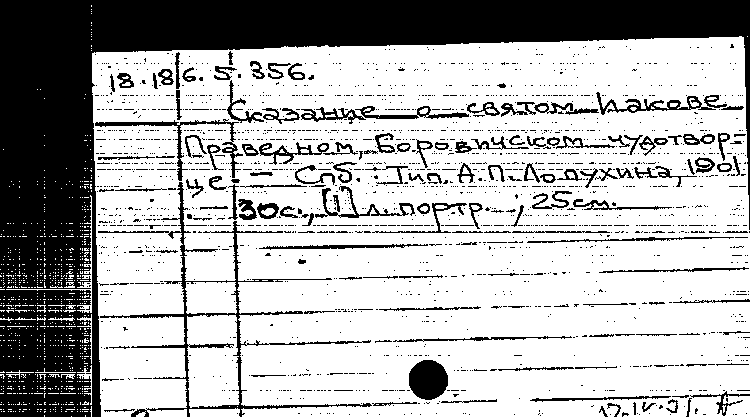 18.186.5.356.
Сказание о святом Иакове
Праведном, Боровичском чудотвор=
це. — Спб. : Тип. А.П. Лопухина, 1901
. — 30с., [1] л. портр. ; 25см.